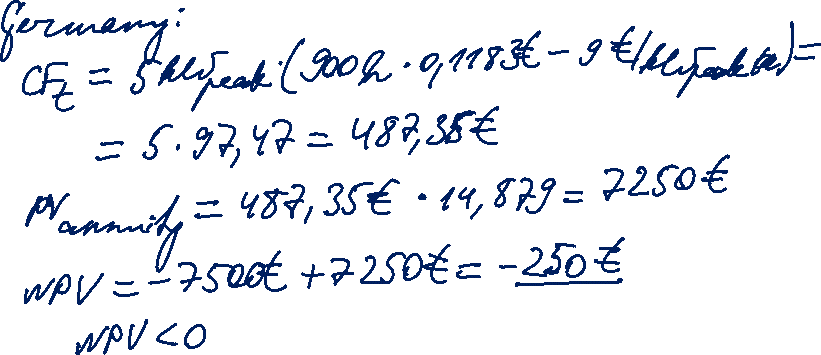 Germany:
CF_t = 5 kW_peak · (900h · 0,1183€ - 9 €/kW_peak) =
= 5 · 97,47 = 487,35€
PV_annuity = 487,35€ · 14,879 = 7250€
NPV = -7500€ + 7250€ = -250€
NPV < 0